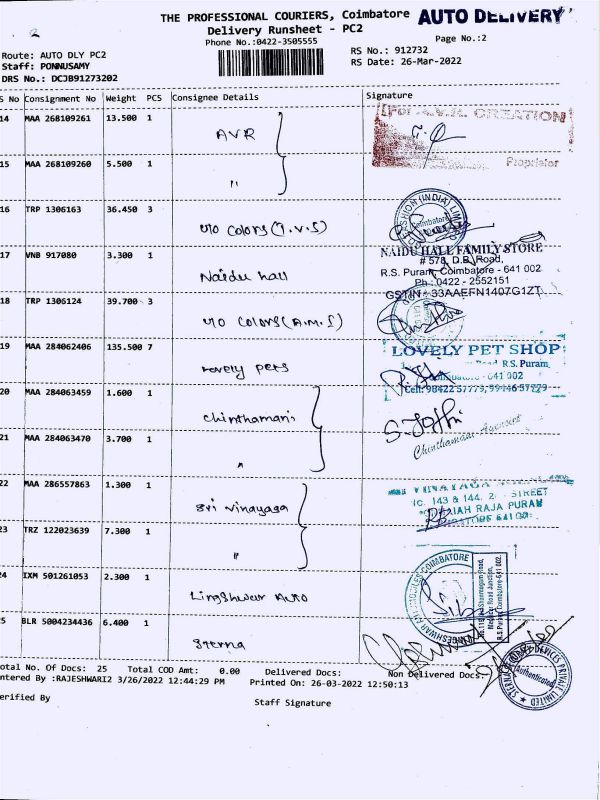 2
THE PROFESSIONAL COURIERS, Coimbatore AUTO DELIVERY
Delivery Runsheet - PC2
Phone No.:0422-3505555 Page No.:2
Route: AUTO DLY PC2 RS No.: 912732
Staff: PONNUSAMY RS Date: 26-Mar-2022
DRS No.: DCJB91273202
S No Consignment No Weight PCS Consignee Details Signature
14 MAA 268109261 13.500 1 AVR
CREATION
15 MAA 268109260 5.500 1 "
Proprietor
16 TRP 1306163 36.450 3 U/O Colors (T.V.S)
FASHION (INDIA) LIMITED
Coimbatore
17 VNB 917080 3.300 1 Naidu hall
NAIDU HALL FAMILY STORE
# 578, D.B. Road,
R.S. Puram, Coimbatore - 641 002
Ph : 0422 - 2552151
GSTIN : 33AAEFN1407G1ZT
18 TRP 1306124 39.700 3 U/O Colors (A.M.S)
19 MAA 284062406 135.500 7 Lovely pets
LOVELY PET SHOP
Road R.S. Puram,
Coimbatore - 641 002
Cell: 98422 57779, 99446 57779
20 MAA 284063459 1.600 1 Chinthamani
S. Jothi
Chinthamani Agencies
21 MAA 284063470 3.700 1 "
22 MAA 286557863 1.300 1 Sri Vinayaga
VINAYAGA
143 & 144, 2 STREET
RAJA PURAM
23 TRZ 122023639 7.300 1 "
24 IXM 501261053 2.300 1 Lingshwar Auto
COIMBATORE
R.S. Puram, Coimbatore-641 002.
25 BLR 5004234436 6.400 1 Sterna
DEVICES PRIVATE LIMITED
Authenticated
Total No. Of Docs: 25 Total COD Amt: 0.00 Delivered Docs: Non Delivered Docs:
Entered By :RAJESHWARI2 3/26/2022 12:44:29 PM Printed On: 26-03-2022 12:50:13
Verified By Staff Signature